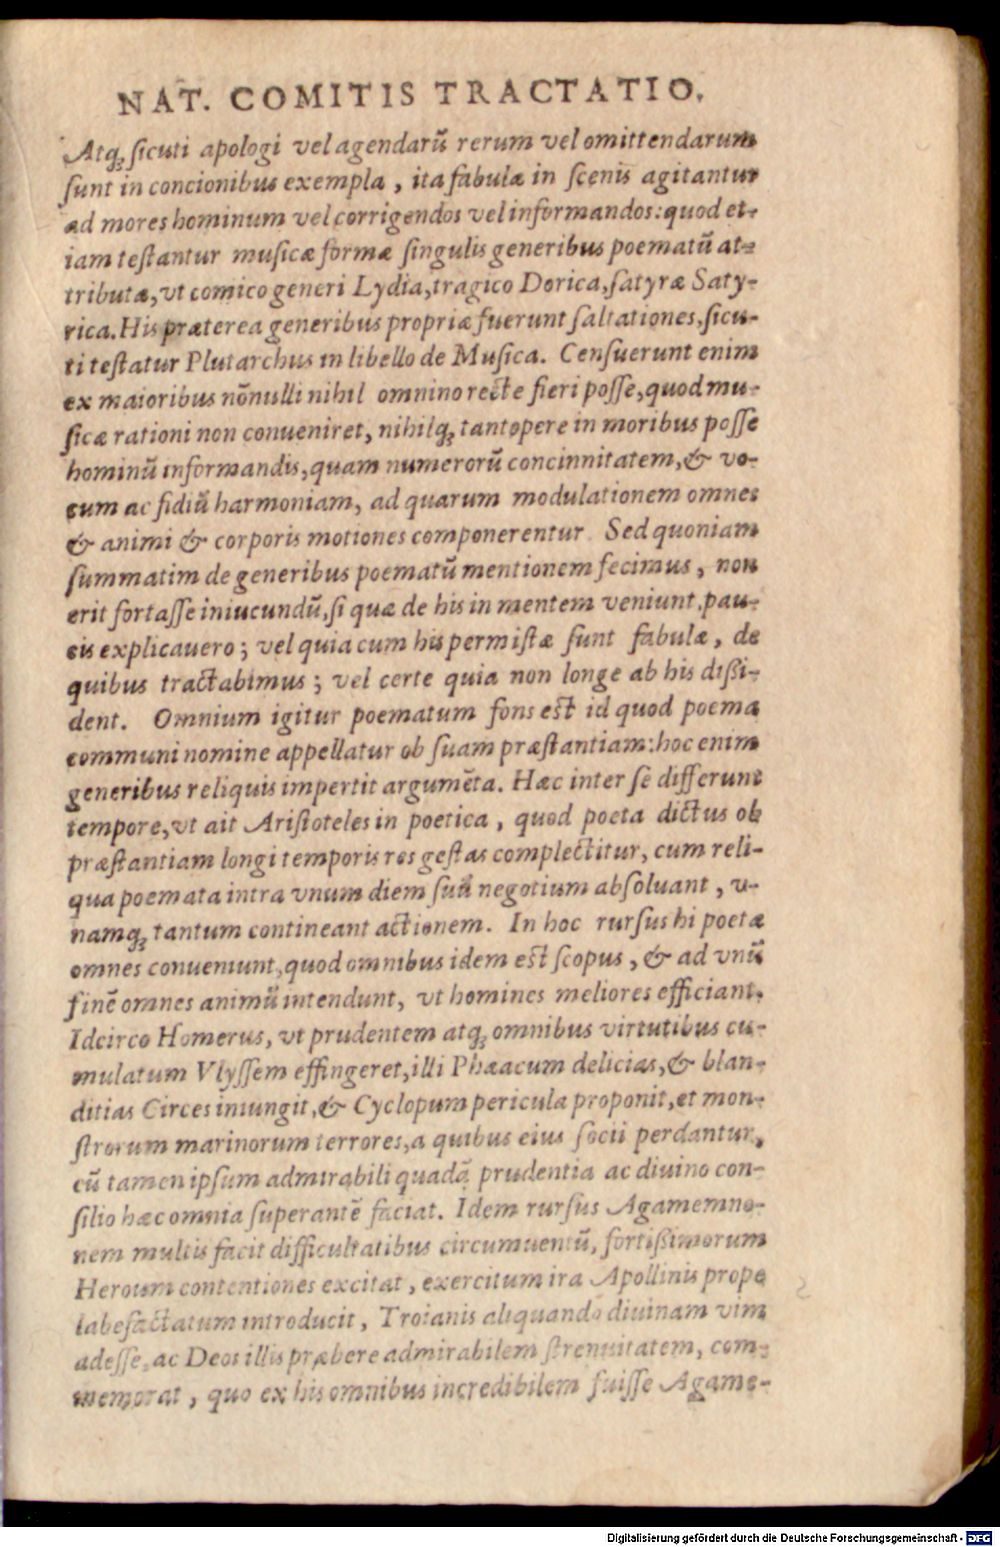 NAT. COMITIS TRACTATIO.
Atq; ſicuti apologi vel agendarū rerum vel omittendarum
ſunt in concionibus exempla, ita fabulæ in ſcenis agitantur
ad mores hominum vel corrigendos vel informandos: quod et-
iam teſtantur muſicæ formæ ſingulis generibus poematū at-
tributæ, vt comico generi Lydia, tragico Dorica, ſatyræ Saty-
rica. His præterea generibus propriæ fuerunt ſaltationes, ſicu-
ti teſtatur Plutarchus in libello de Muſica. Cenſuerunt enim
ex maioribus nōnulli nihil omnino recte fieri poſſe, quod mu-
ſicæ rationi non conueniret, nihilq; tantopere in moribus poſſe
hominū informandis, quam numerorū concinnitatem, & vo-
cum ac fidiū harmoniam, ad quarum modulationem omnes
& animi & corporis motiones componerentur. Sed quoniam
ſummatim de generibus poematū mentionem fecimus, non
erit fortaſſe iniucundū, ſi quæ de his in mentem veniunt, pau-
cis explicauero; vel quia cum his permiſtæ ſunt fabulæ, de
quibus tractabimus; vel certe quia non longe ab his dißi-
dent. Omnium igitur poematum fons est id quod poema
communi nomine appellatur ob ſuam præſtantiam: hoc enim
generibus reliquis impertit argumēta. Hæc inter ſe differunt
tempore, vt ait Ariſtoteles in poetica, quod poeta dictus ob
præſtantiam longi temporis res geſtas complectitur, cum reli-
qua poemata intra vnum diem ſuū negotium abſoluant, v-
namq; tantum contineant actionem. In hoc rurſus hi poetæ
omnes conueniunt, quod omnibus idem est ſcopus, & ad vnū
finē omnes animū intendunt, vt homines meliores efficiant.
Idcirco Homerus, vt prudentem atq; omnibus virtutibus cu-
mulatum Vlyſſem effingeret, illi Phæacum delicias, & blan-
ditias Circes iniungit, & Cyclopum pericula proponit, et mon-
ſtrorum marinorum terrores, a quibus eius ſocii perdantur,
cū tamen ipſum admirabili quadā prudentia ac diuino con-
ſilio hæc omnia ſuperantē faciat. Idem rurſus Agamemno-
nem multis facit difficultatibus circumuentū, fortißimorum
Heroum contentiones excitat, exercitum ira Apollinis prope
labefactatum introducit, Troianis aliquando diuinam vim
adeſſe, ac Deos illis præbere admirabilem ſtrenuitatem, com-
memorat, quo ex his omnibus incredibilem fuiſſe Agame-
Digitalisierung gefördert durch die Deutsche Forschungsgemeinschaft - DFG